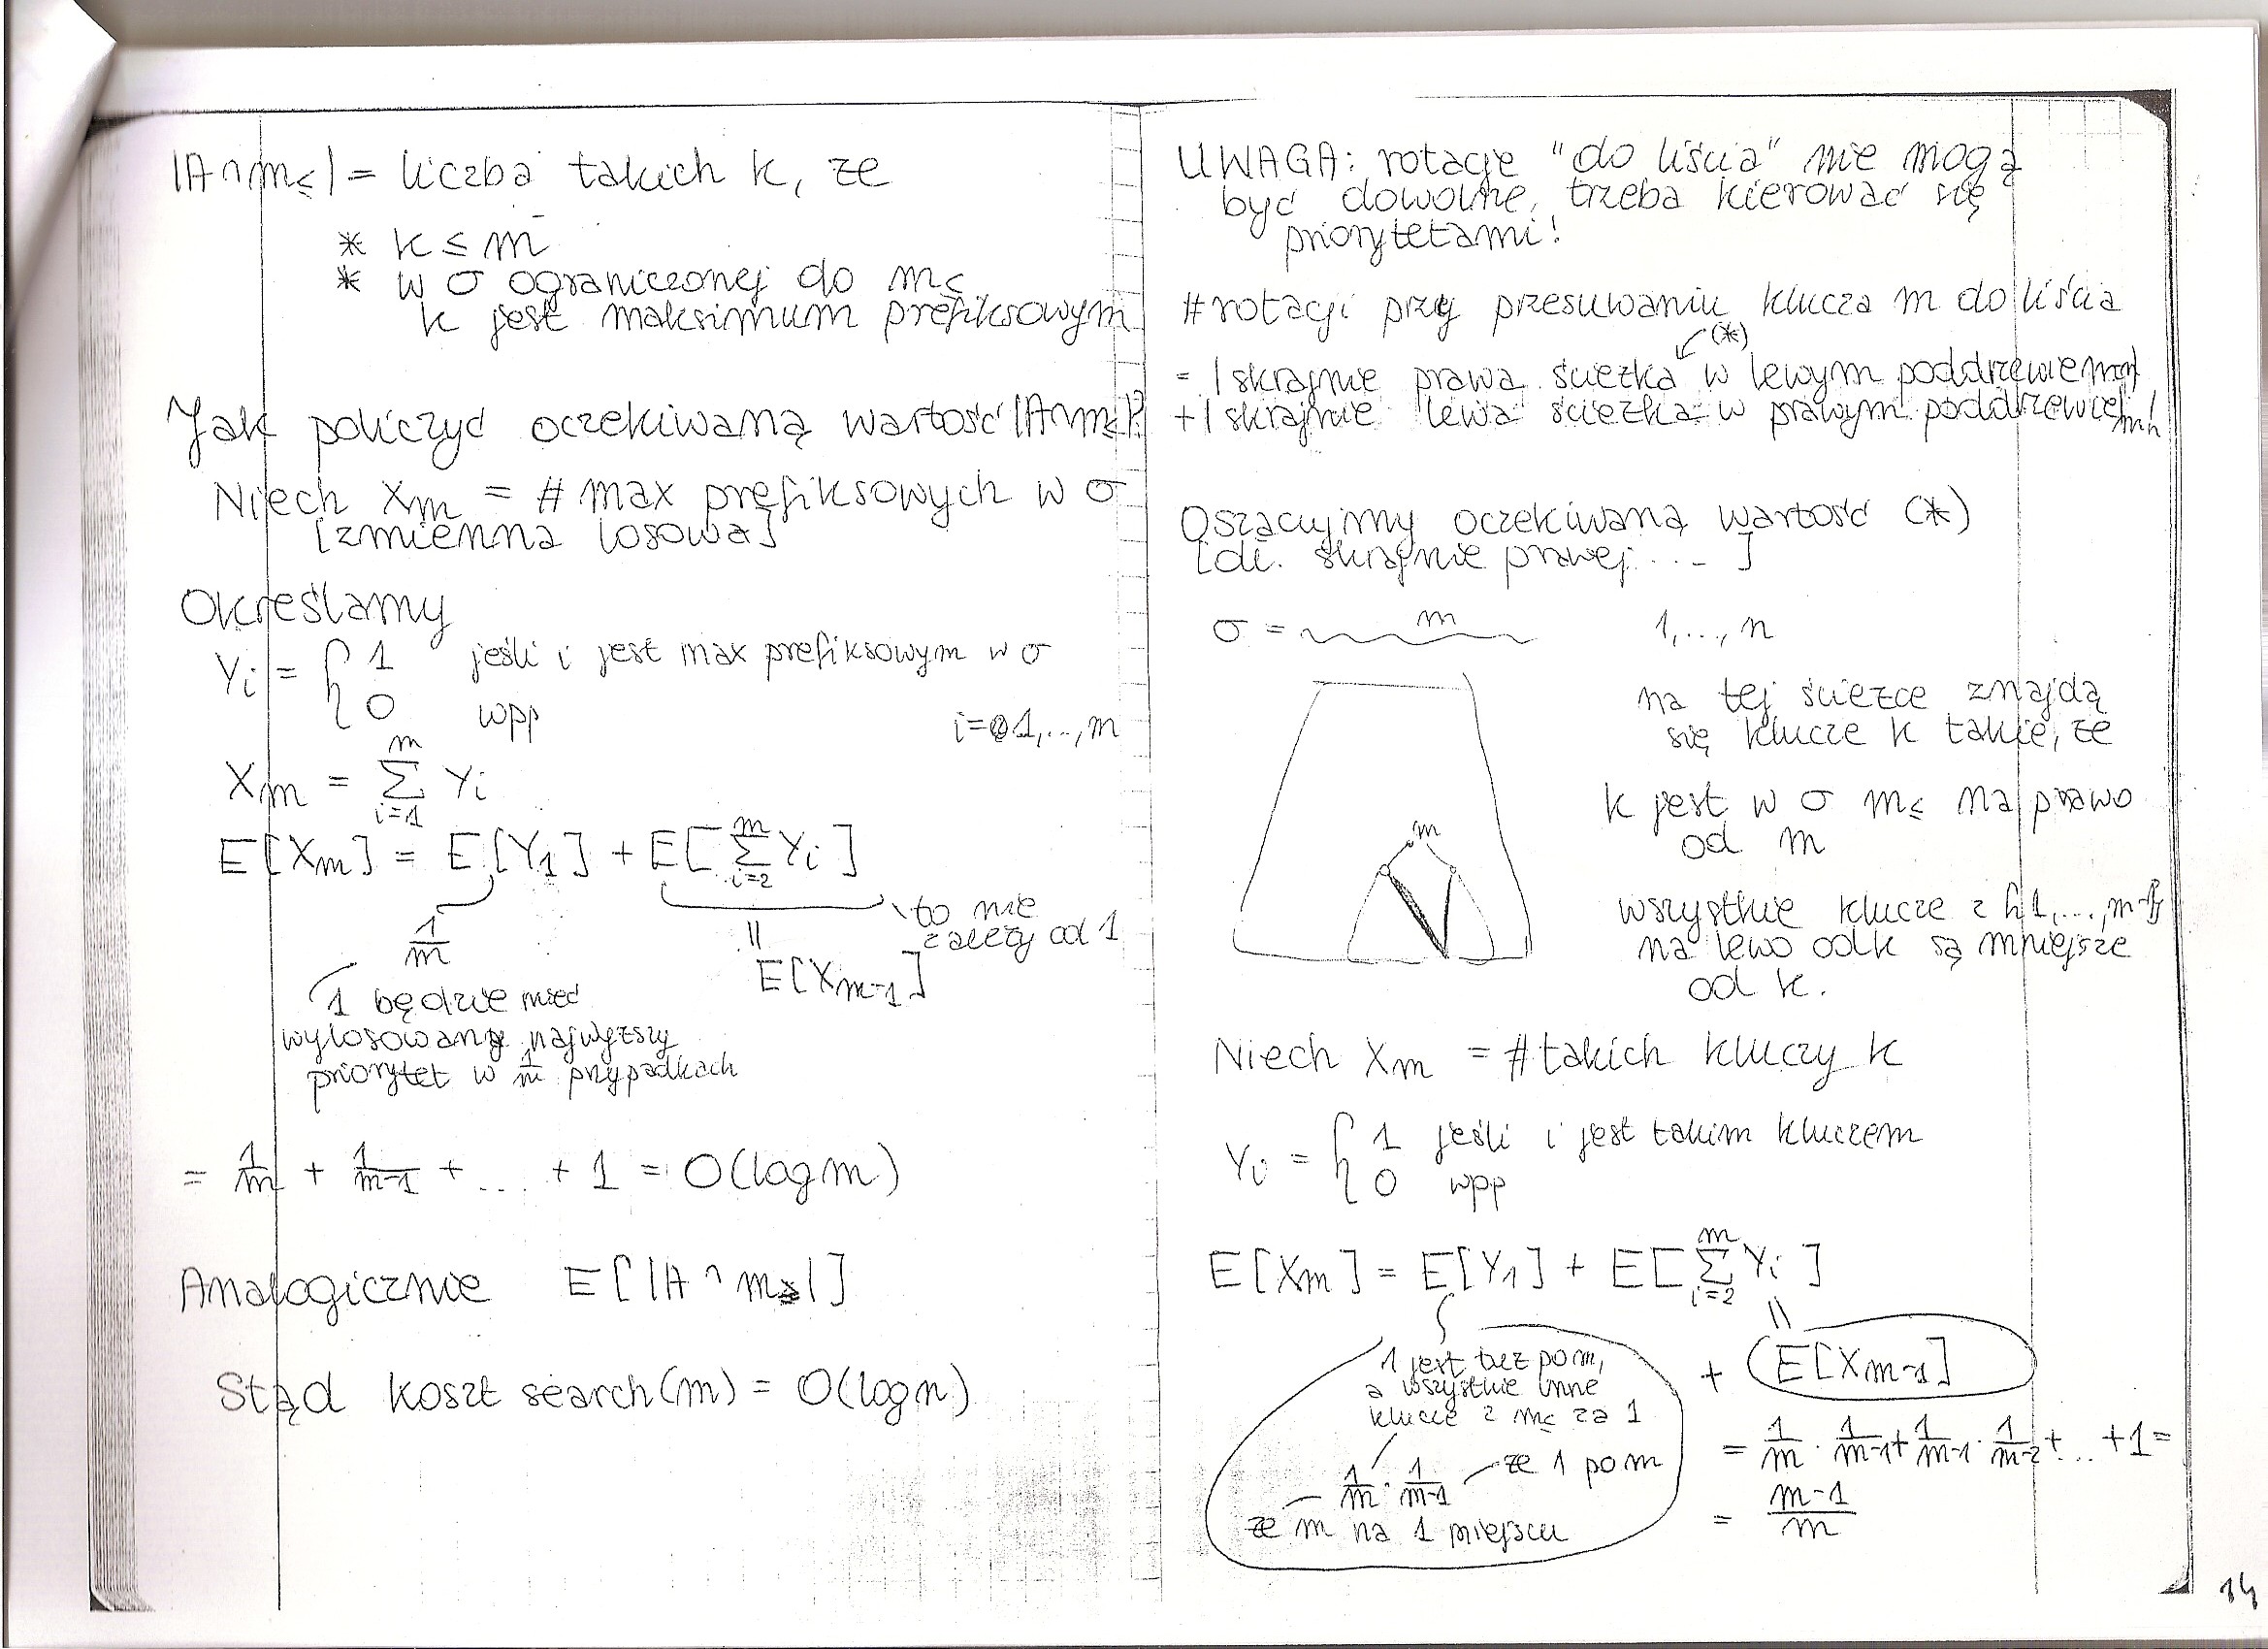 |A∩m≤| = liczba takich k, że
* k ≤ m
* w σ ograniczonej do m≤
k jest maksimum prefiksowym
Jak policzyć oczekiwaną wartość |A∩m≤|?
Niech Xm = # max prefiksowych w σ
[zmienna losowa]
Określamy
Yi = { 1 jeśli i jest max prefiksowym w σ
0 wpp
i=1,...,m
Xm = Σ_{i=1}^{m} Yi
E[Xm] = E[Y1] + E[Σ_{i=2}^{m} Yi]
to nie
zależy od 1
1/m
||
E[Xm-1]
1 będzie mieć
wylosowany najwyższy
priorytet w 1/m przypadkach
= 1/m + 1/m-1 + ... + 1 = O(log m)
Analogicznie E[|A∩m≥|]
Stąd koszt search(m) = O(log n)
UWAGA: rotacje "do liścia" nie mogą
być dowolne, trzeba kierować się
priorytetami!
# rotacji przy przesuwaniu klucza m do liścia
(*)
= |skrajnie prawa ścieżka w lewym poddrzewie m|
+ |skrajnie lewa ścieżka w prawym poddrzewie m|
Oszacujmy oczekiwaną wartość (*)
[dł. skrajnie prawej ... ]
σ = m 1,...,n
na tej ścieżce znajdą
się klucze k takie, że
k jest w σ m≤ na prawo
od m
m
wszystkie klucze z {1,...,m-1}
na lewo od k są mniejsze
od k.
Niech Xm = # takich kluczy k
Yi = { 1 jeśli i jest takim kluczem
0 wpp
E[Xm] = E[Y1] + E[Σ_{i=2}^{m} Yi]
||
1 jest tuż po m,
a wszystkie inne
klucze z m≤ za 1
+ E[Xm-1]
1/m · 1/m-1 że 1 po m
że m na 1 miejscu
= 1/m · 1/m-1 + 1/m-1 · 1/m-2 + ... + 1 =
= m-1/m
14